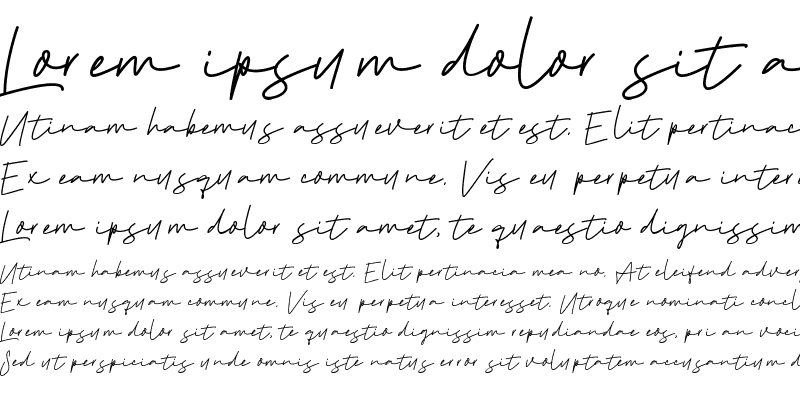 Lorem ipsum dolor sit a
Utinam habemus assueverit et est. Elit pertinac
Ex eam nusquam commune. Vis eu perpetua inter
Lorem ipsum dolor sit amet, te quaestio dignissim
Utinam habemus assueverit et est. Elit pertinacia mea no. At eleifend adver
Ex eam nusquam commune. Vis eu perpetua interesset. Utroque nominati concl
Lorem ipsum dolor sit amet, te quaestio dignissim repudiandae eos, pri an voci
Sed ut perspiciatis unde omnis iste natus error sit voluptatem accusantium d